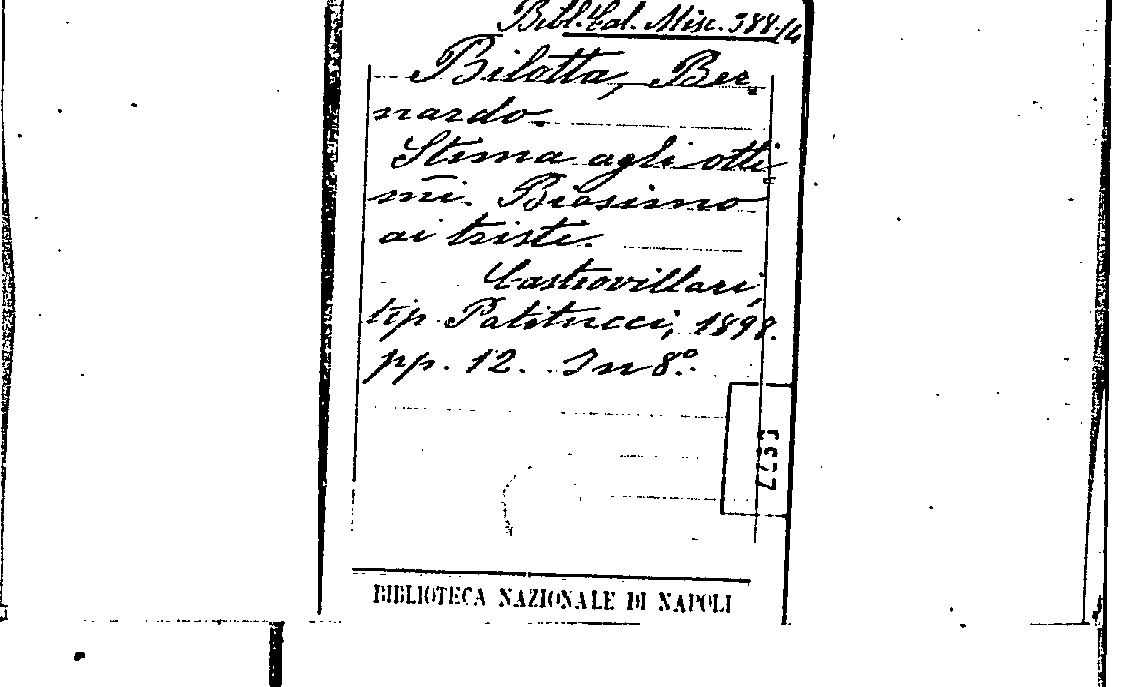 Bibl. Cal. Misc. 388/4
Bilotta, Ber-
nardo.
Stima agli otti-
mi. Biasimo
ai tristi.
Castrovillari,
tip. Patitucci, 1898.
pp. 12. In 8º.
BIBLIOTECA NAZIONALE DI NAPOLI